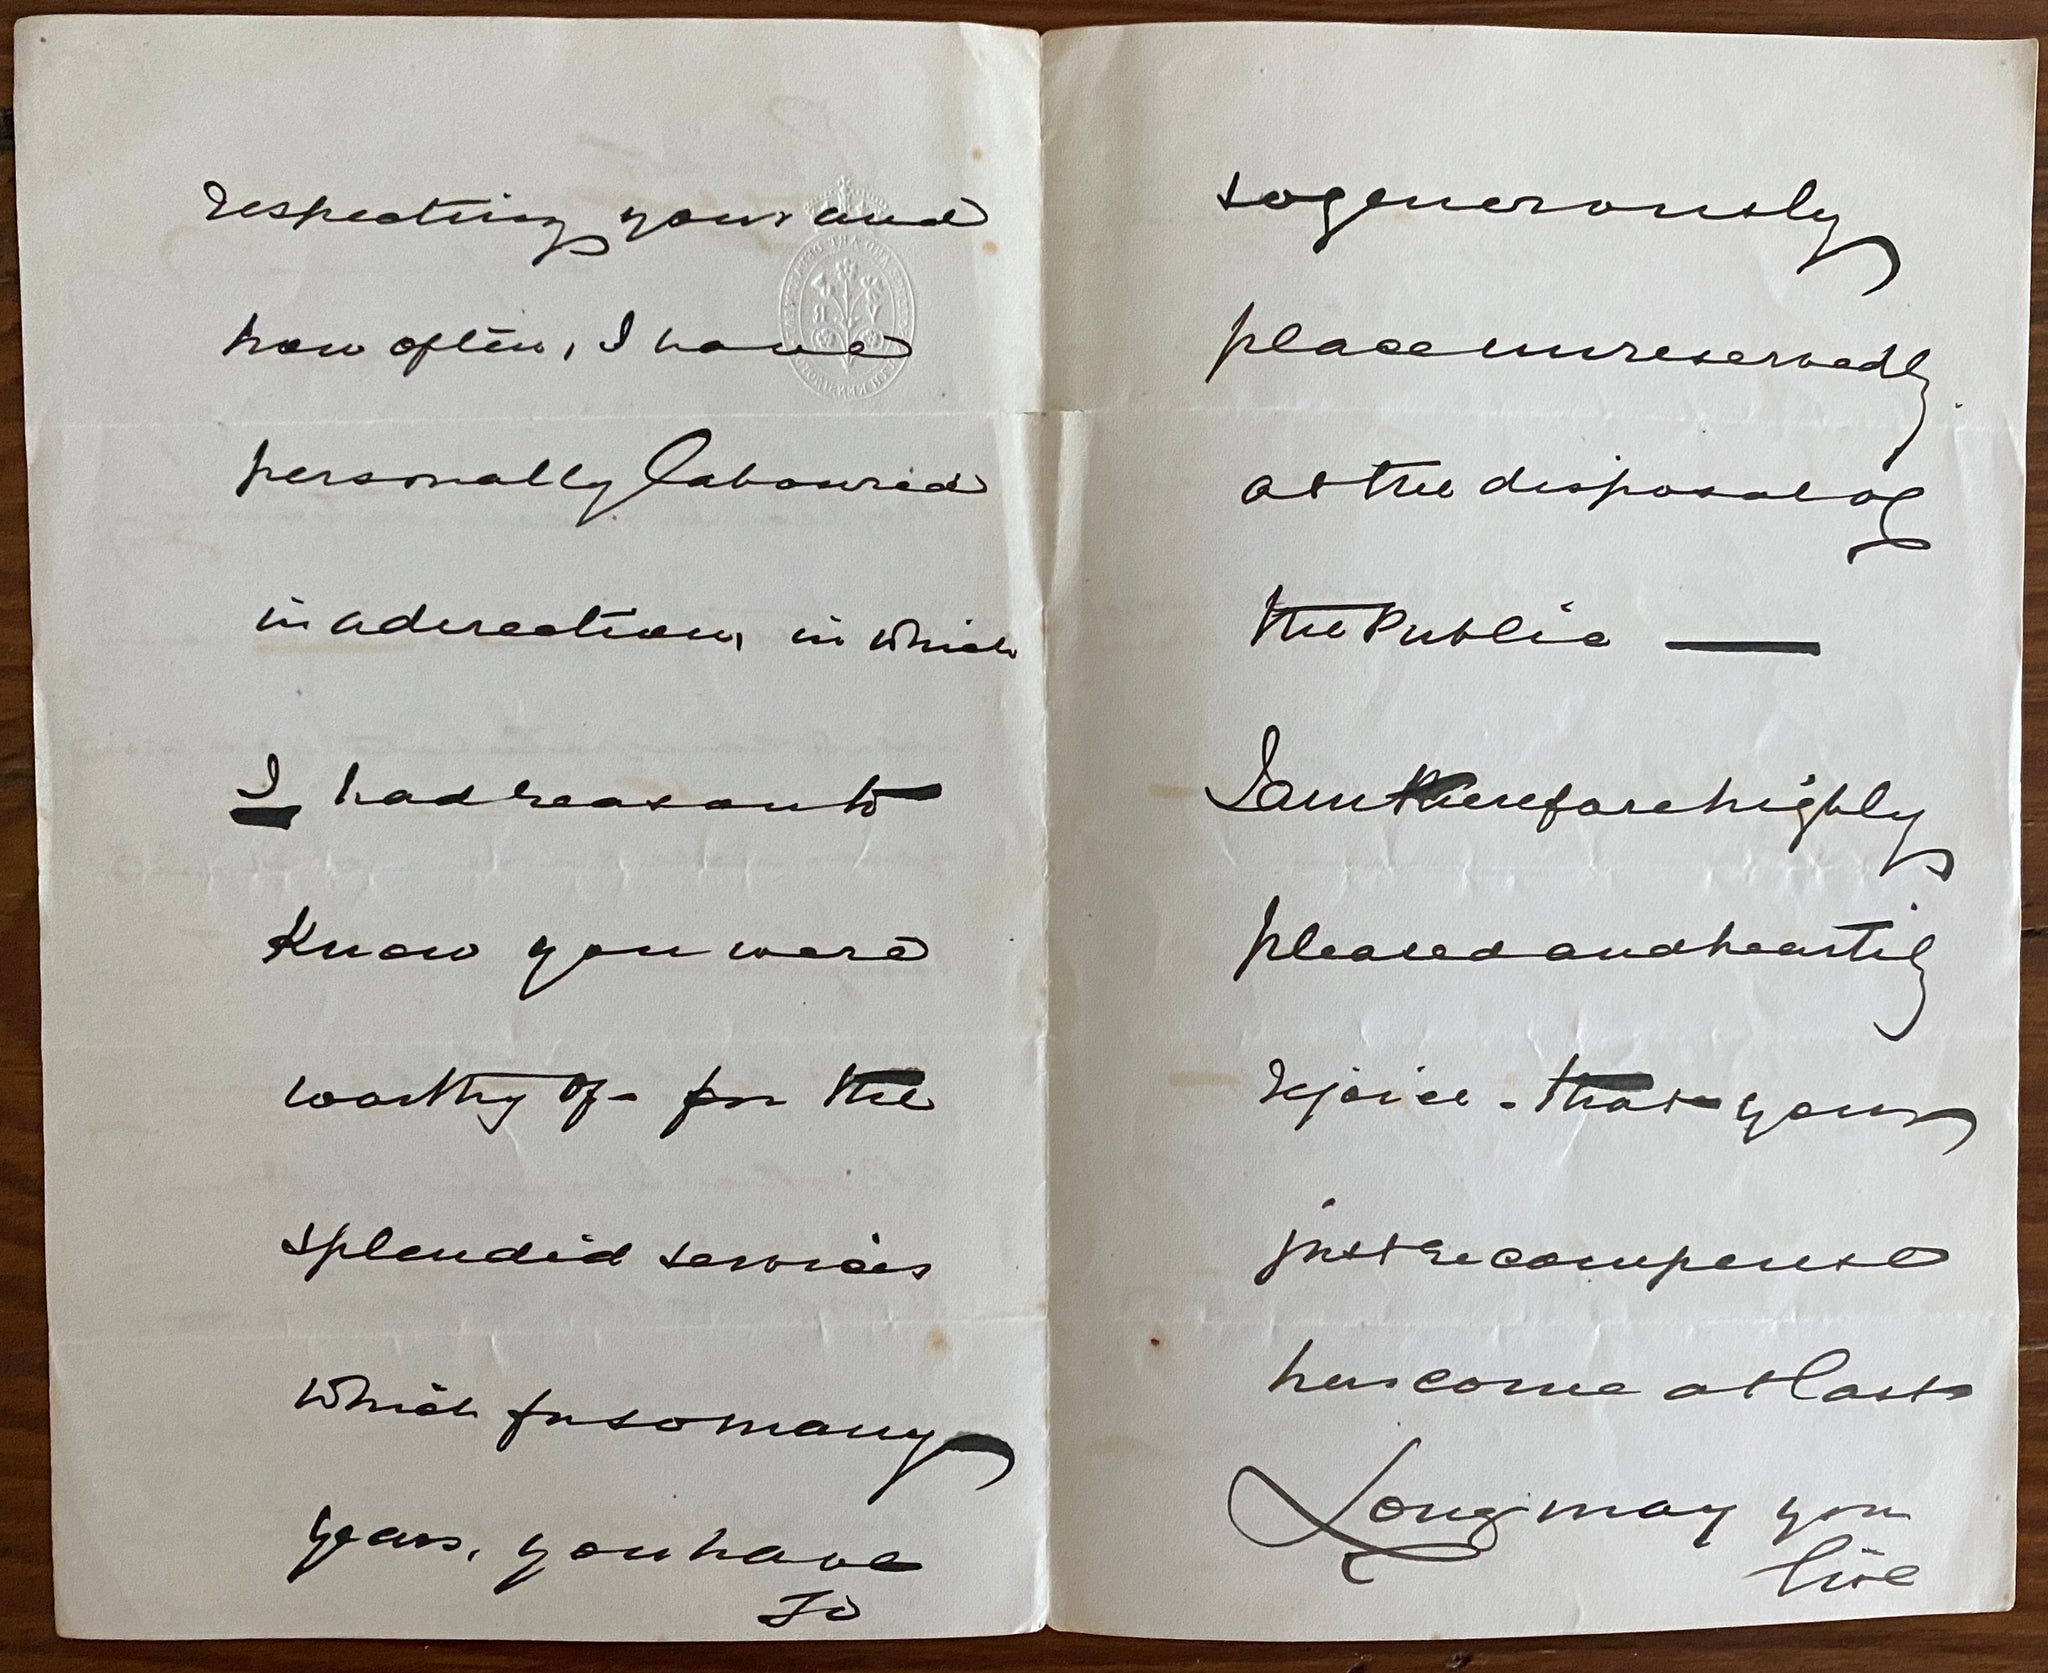 respecting you: and
how often, I have
personally laboured
in a direction, in which
I had reason to
Know you were
worthy of - for the
splendid services
which for so many
years, you have
so
so generously
place unreservedly
at the disposal of
the Public —
I am therefore highly
pleased and heartily
rejoice - that your
just recompense
has come at last
Long may you
live